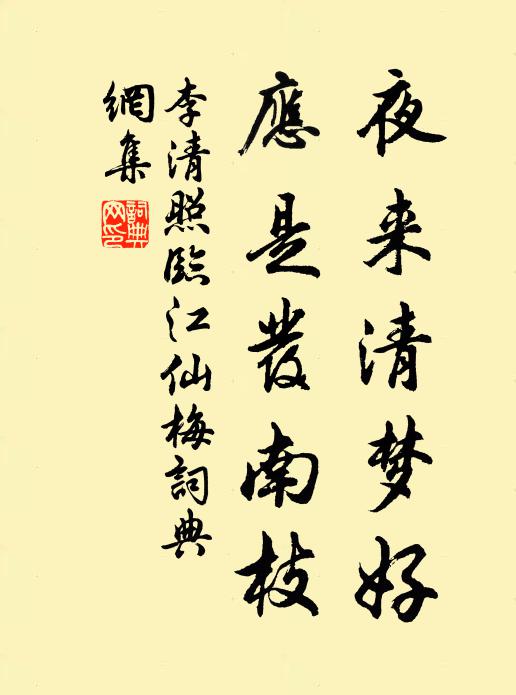 夜来清梦好
應是發南枝
李清照臨江仙梅詞典
網集
詞典網印